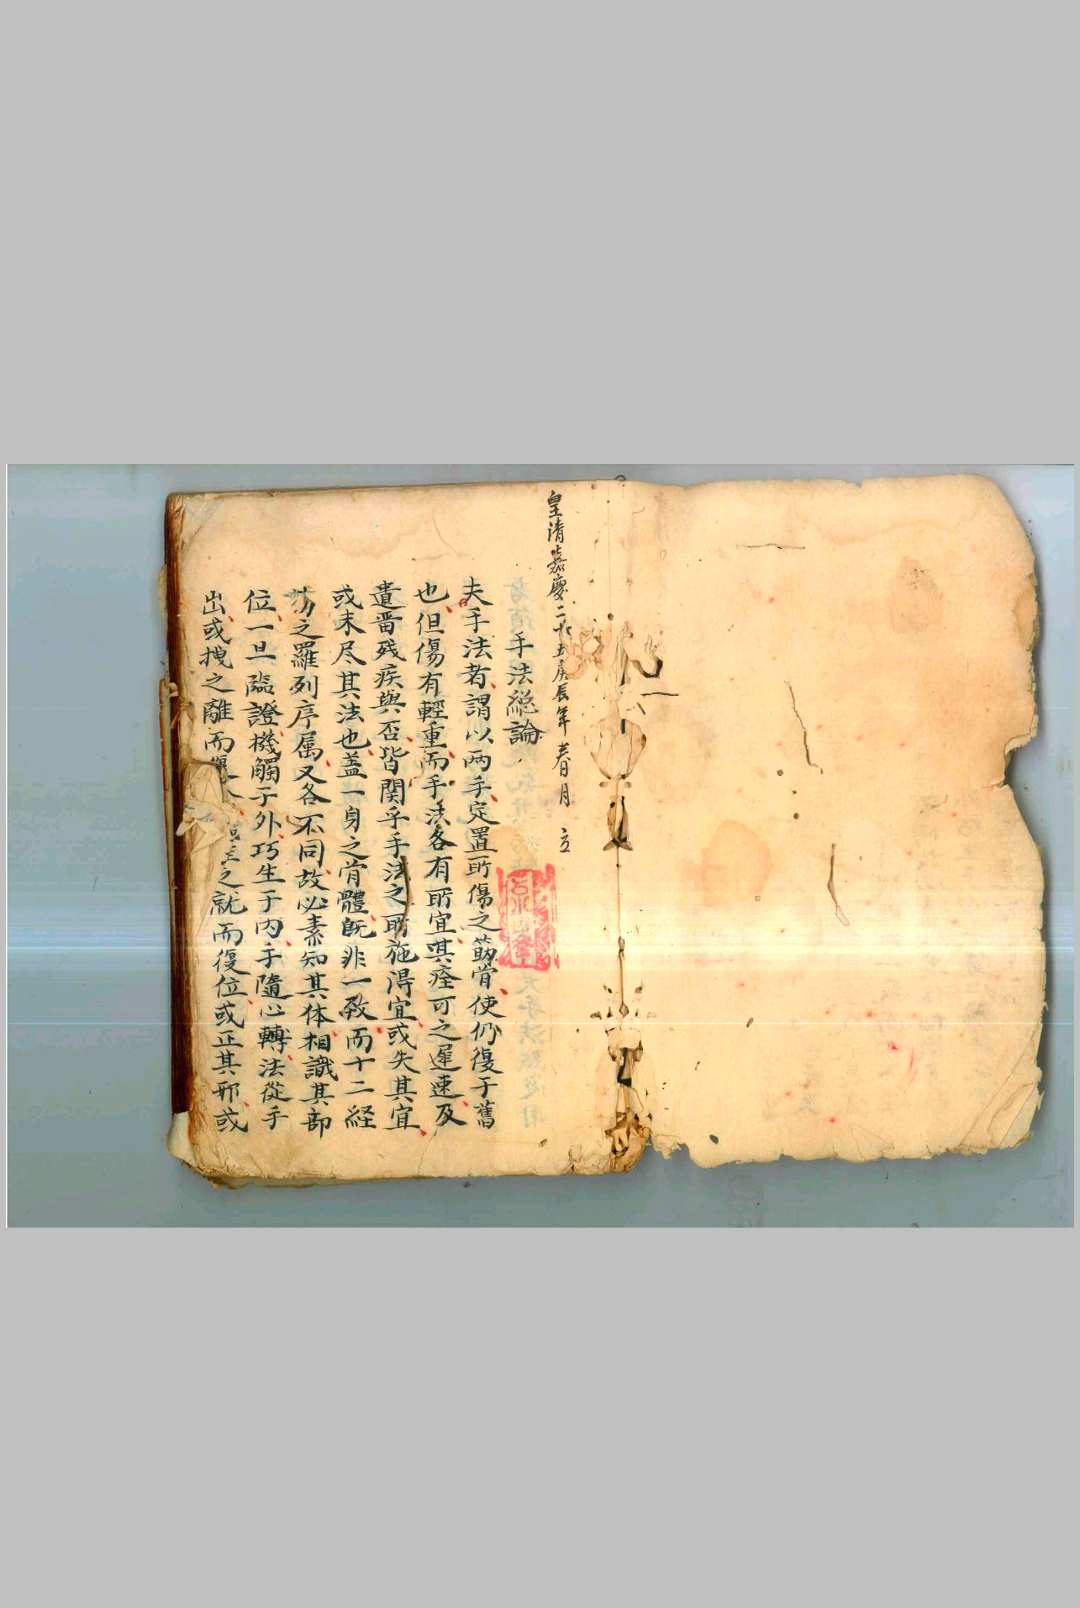 皇清嘉慶二十五庚辰年春月 立
手法総論
夫手法者謂以两手定置所傷之筯骨使仍復于舊
也但傷有輕重而手法各有所宜其痊可之遲速及
遺畱殘疾與否皆関乎手法之所施得宜或失其宜
或未尽其法也盖一身之骨體既非一致而十二経
筋之羅列序属又各不同故必素知其体相識其部
位一旦臨證機觸于外巧生于内手隨心轉法従手
出或拽之離而之就而復位或正其邪或